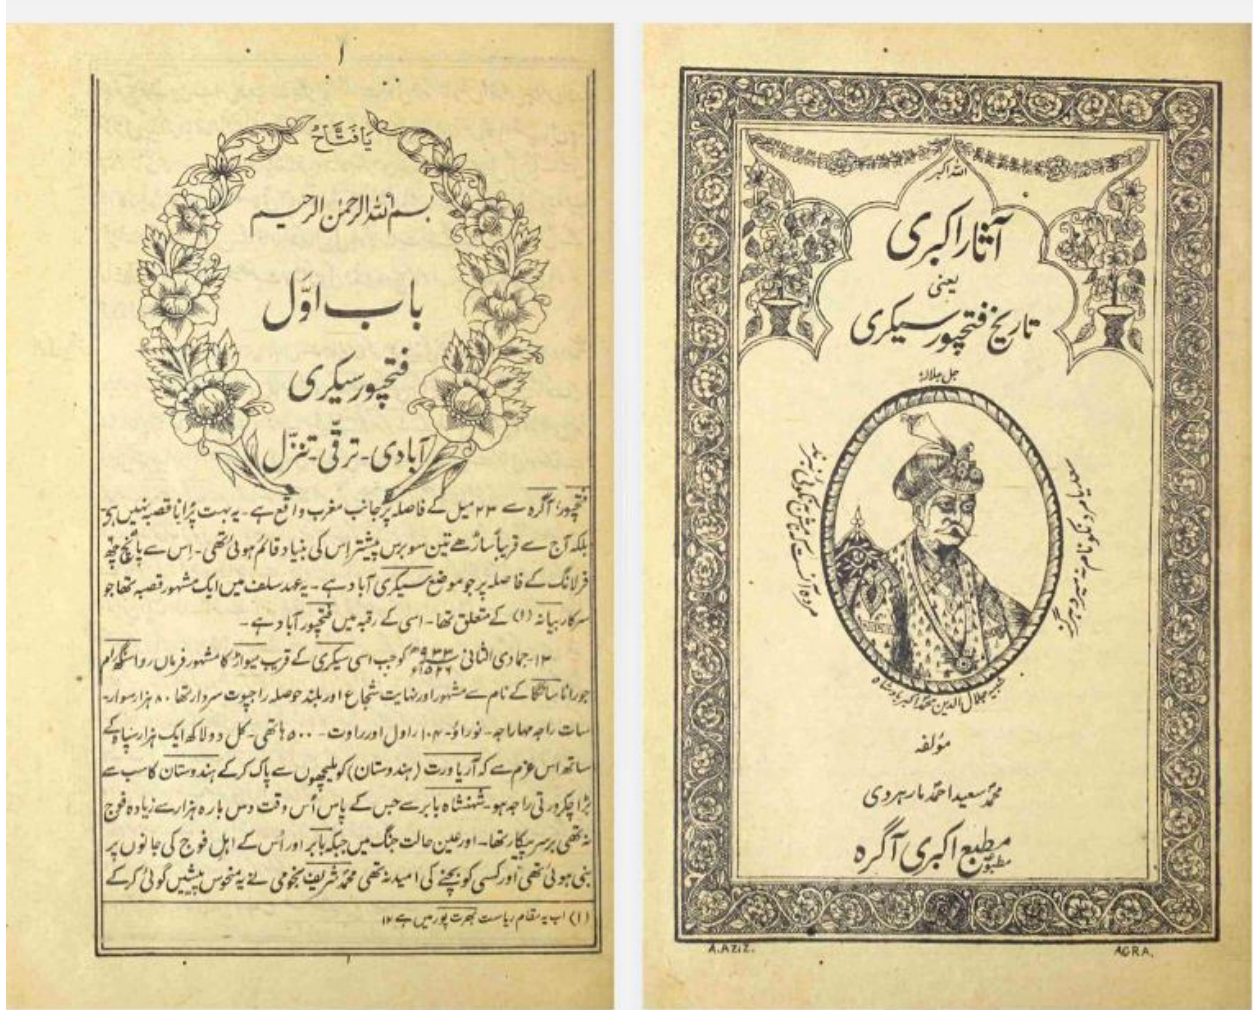 اللہ اکبر
آثار اکبری
یعنی
تاریخ فتحپور سیکری
جل جلالہ
شبیہ جلال الدین محمد اکبر بادشاہ
مؤلفہ
محمد سعید احمد مارہروی
مطبوعہ
مطبع اکبری آگرہ
A.AZIZ.
AGRA.
۱
یَا فَتَّاحُ
بسم اللہ الرحمٰن الرحیم
باب اوّل
فتحپور سیکری
آبادی - ترقّی - تنزّل
فتحپور؛ آگرہ سے ۲۳ میل کے فاصلہ پر جانب مغرب واقع ہے - یہ بہت پُرانا قصبہ نہیں ہے
بلکہ آج سے قریباً ساڑھے تین سو برس پیشتر اِس کی بنیاد قائم ہوئی تھی - اِس سے پانچ چھ
فرلانگ کے فاصلہ پر جو موضع سیکری آباد ہے - یہ عہد سلف میں ایک مشہور قصبہ تھا جو
سرکار بیانہ (۱) کے متعلق تھا - اسی کے رقبہ میں فتحپور آباد ہے -
۱۳- جمادی الثانی ۹۳۳ھ ۱۵۲۶ء کو جب اسی سیکری کے قریب میواڑ کا مشہور فرماں روا سنگرام
جو رانا سانگا کے نام سے مشہور اور نہایت شجاع اور بلند حوصلہ راجپوت سردار تھا - ۸۰ ہزار سوار -
سات راجہ مہاراجہ - نو راؤ - ۱۰۴ راول اور راوت - ۵۰۰ ہاتھی - کل دو لاکھ ایک ہزار سپاہ کے
ساتھ اس عزم سے کہ آریا ورت (ہندوستان) کو ملیچھوں سے پاک کرکے ہندوستان کا سب سے
بڑا چکرورتی راجہ ہو - شہنشاہ بابر سے جس کے پاس اُس وقت دس بارہ ہزار سے زیادہ فوج
نہ تھی برسر پیکار تھا - اور عین حالت جنگ میں جبکہ بابر اور اُس کے اہل فوج کی جانوں پر
بنی ہوئی تھی اور کسی کو بچنے کی امید نہ تھی محمد شریف نجومی نے یہ منحوس پیشیں گوئی کرکے
(۱) اب یہ مقام ریاست بھرت پور میں ہے ۱۲